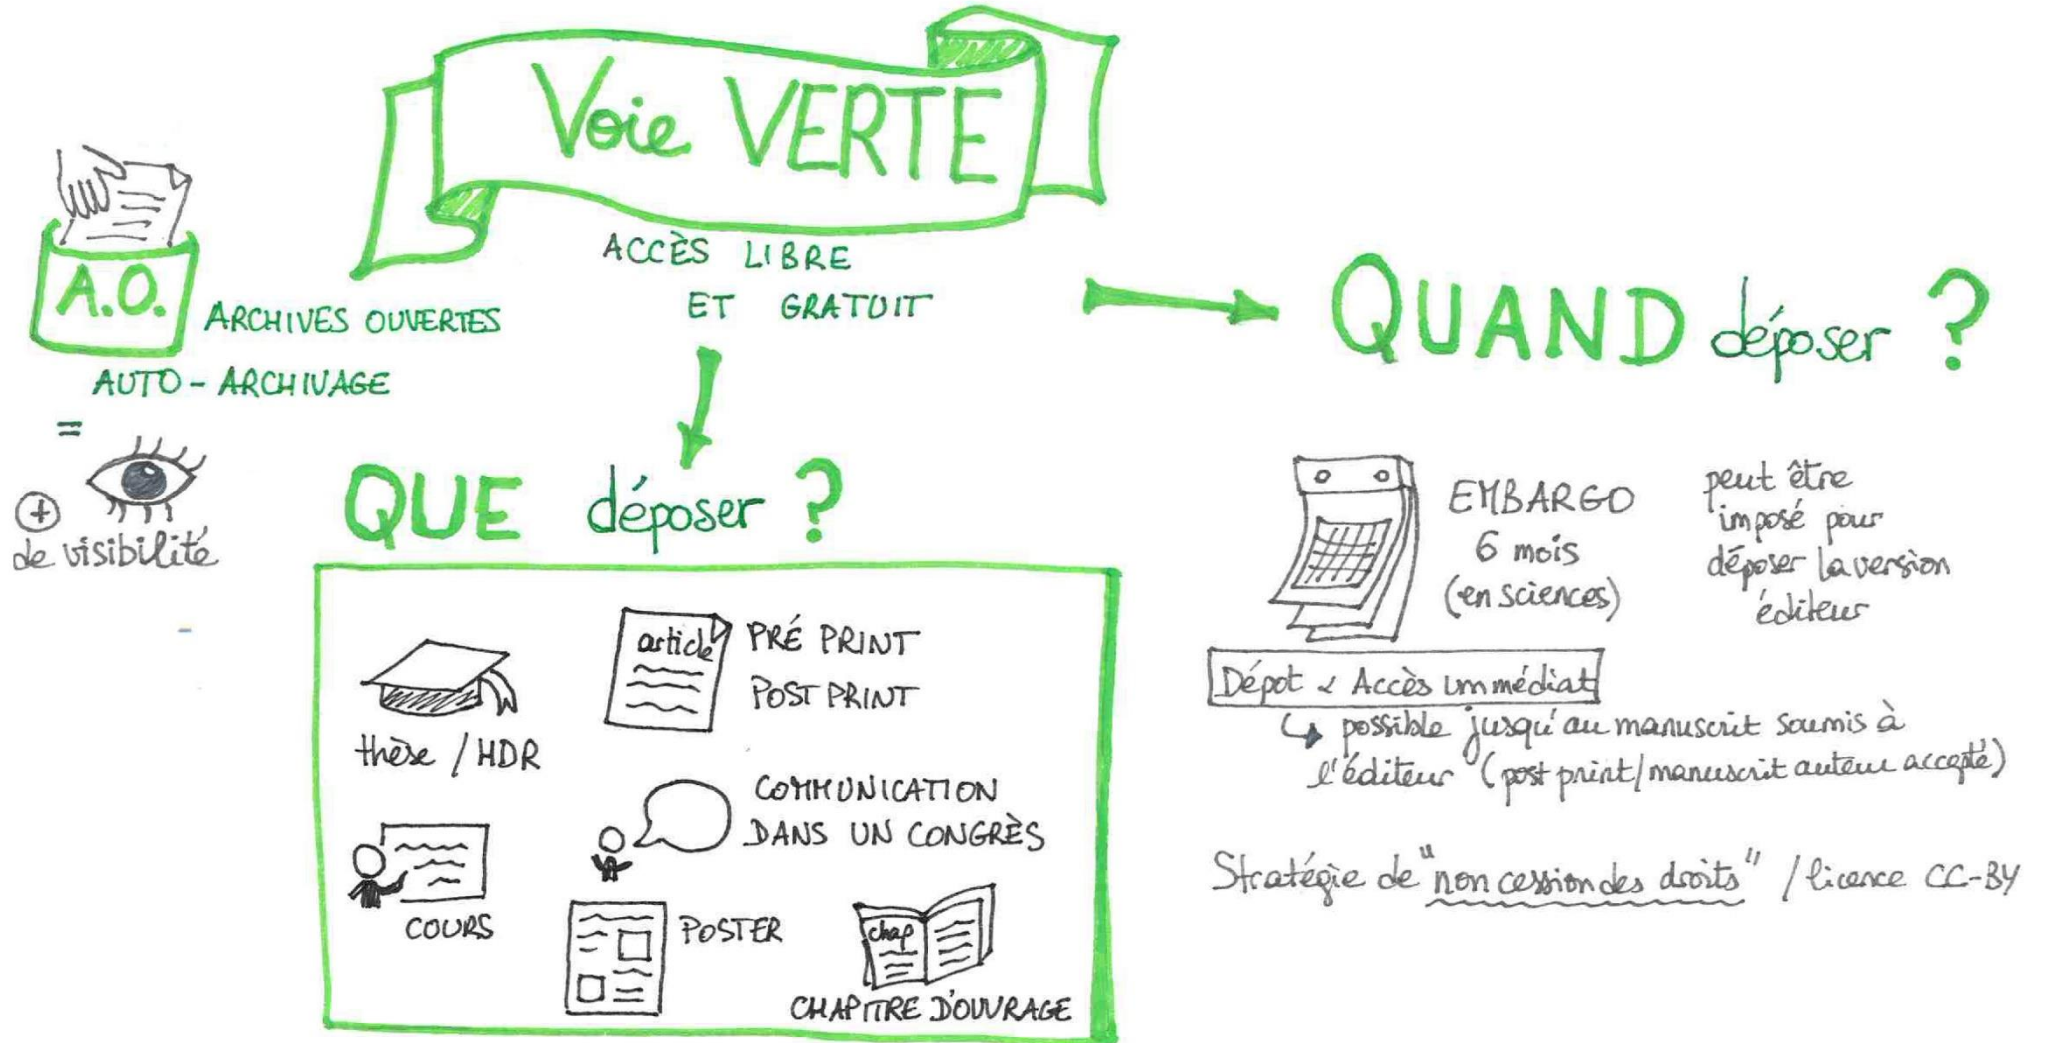 Voie VERTE
ACCÈS LIBRE
ET GRATUIT
A.O.
ARCHIVES OUVERTES
AUTO-ARCHIVAGE
=
+
de visibilité
QUE déposer ?
thèse / HDR
article
PRÉ PRINT
POST PRINT
COMMUNICATION
DANS UN CONGRÈS
COURS
POSTER
chap
CHAPITRE D'OUVRAGE
QUAND déposer ?
EMBARGO
6 mois
(en sciences)
peut être
imposé pour
déposer la version
éditeur
Dépot & Accès immédiat
possible jusqu'au manuscrit soumis à
l'éditeur (post print/manuscrit auteur accepté)
Stratégie de "non cession des droits" / licence CC-BY